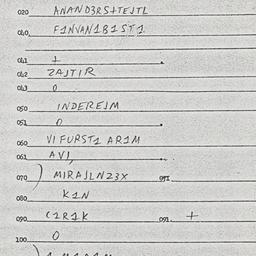 020 ANAND3RS+TEJTL
040 F1NVAN1B1ST1
041 +
042 ZAJTIR
043 0
050 INDEREJM
051 0
060 VIFURST1 AR1M
061 AVI,
070 MIRAJLNZ3X 071
080 K1N
090 C1R1K 091. +
100 0